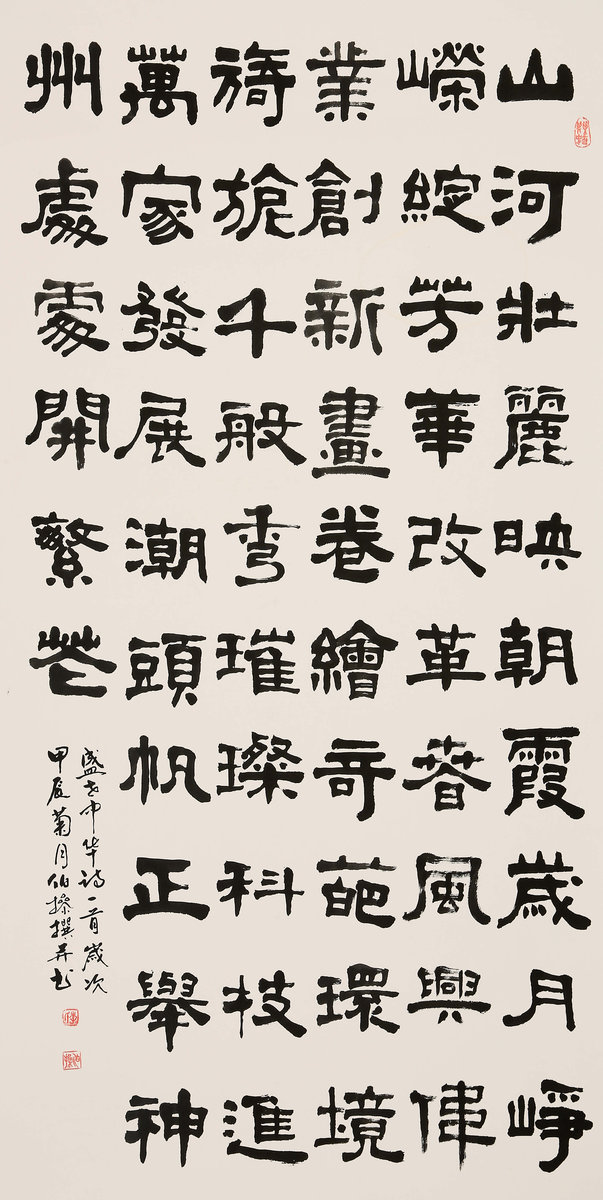 山河壯麗映朝霞歲月崢
嶸綻芳華改革春風興偉
業創新畫卷繪奇葩環境
旖旎千般秀璀璨科技進
萬家發展潮頭帆正舉神
州處處開繁花
盛世中华诗一首歲次
甲辰菊月伯操撰并书